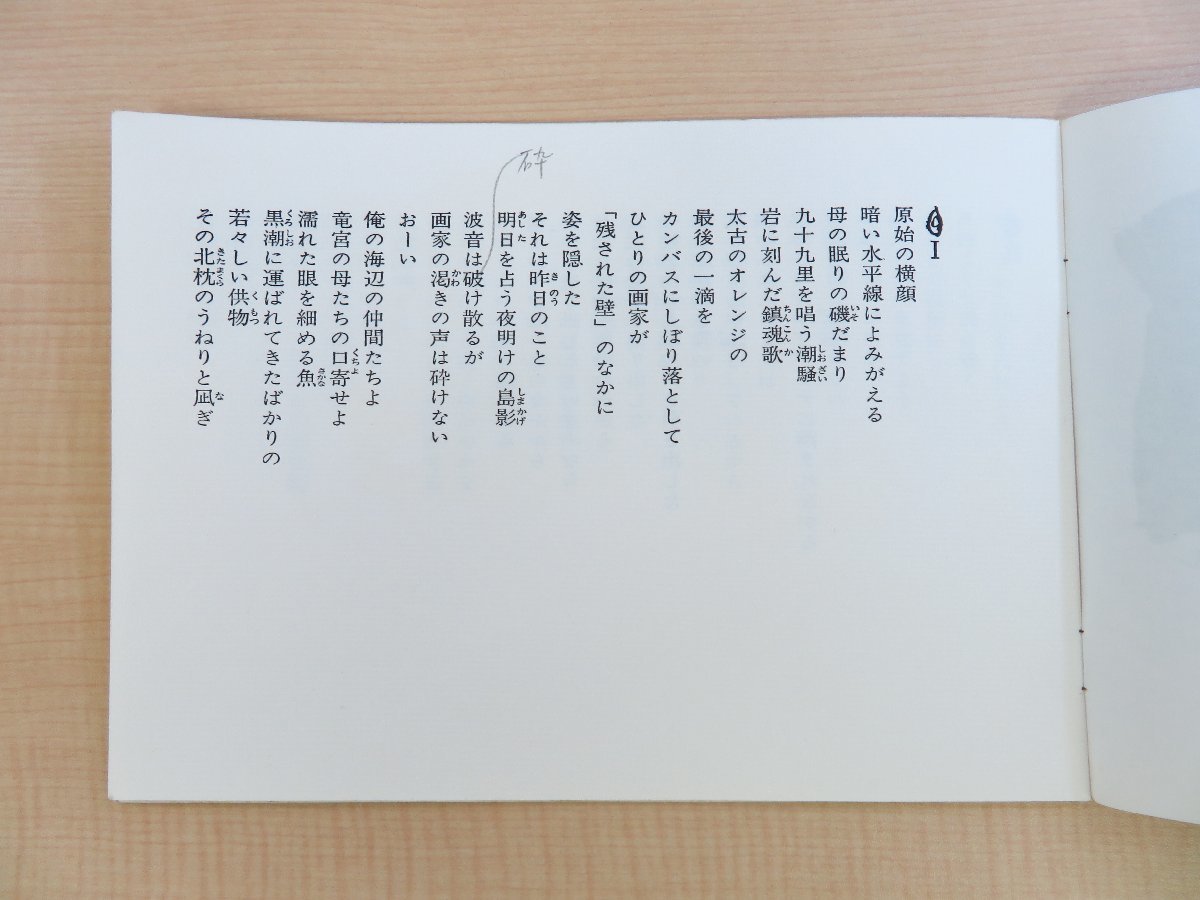 I
原始の横顔
暗い水平線によみがえる
母の眠りの磯だまり
九十九里を唱う潮騒
岩に刻んだ鎮魂歌
太古のオレンジの
最後の一滴を
カンバスにしぼり落として
ひとりの画家が
「残された壁」のなかに
姿を隠した
それは昨日のこと
明日を占う夜明けの島影
波音は破け散るが
画家の渇きの声は砕けない
おーい
俺の海辺の仲間たちよ
竜宮の母たちの口寄せよ
濡れた眼を細める魚
黒潮に運ばれてきたばかりの
若々しい供物
その北枕のうねりと凪ぎ
砕
いそ
しおざい
ちんこんか
きのう
あした
しまかげ
かわ
くちよ
さかな
くろしお
くもつ
きたまくら
な